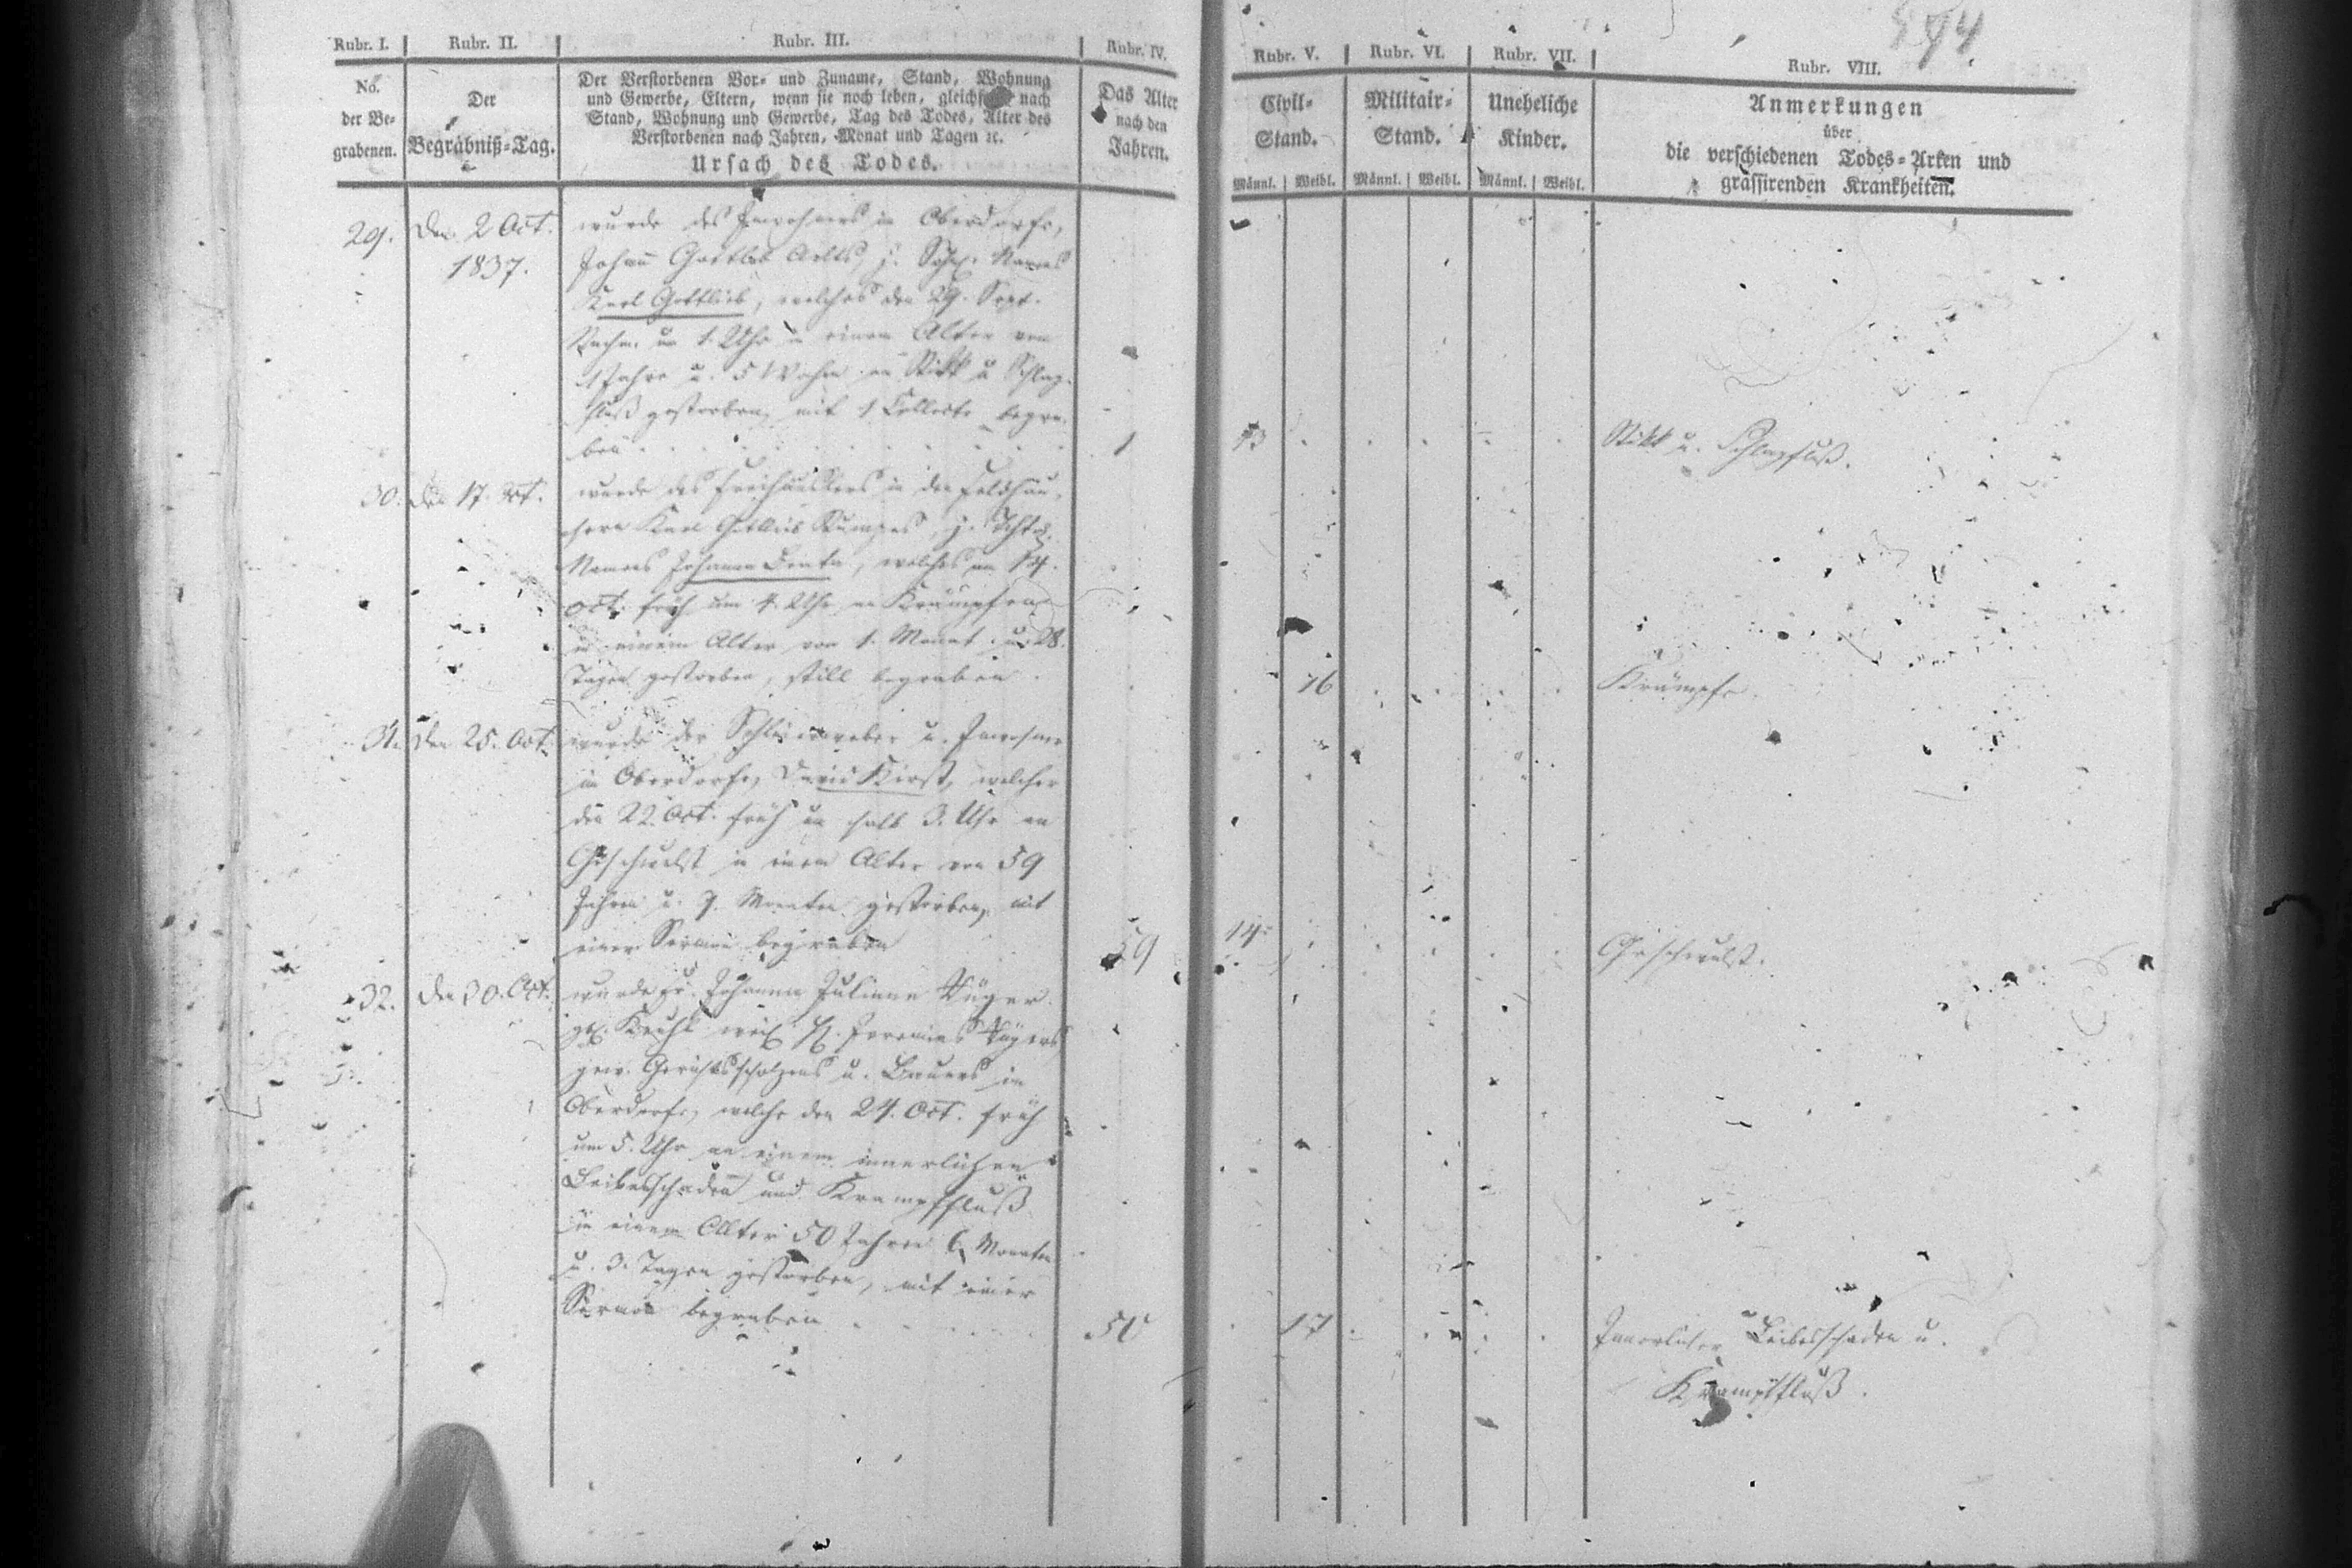 594
Rubr. I. Rubr. II. Rubr. III. Rubr. IV. Rubr. V. Rubr. VI. Rubr. VII. Rubr. VIII.
No. der Be- grabenen.
Der Begräbniß-Tag.
Der Verstorbenen Vor- und Zuname, Stand, Wohnung
und Gewerbe, Eltern, wenn sie noch leben, gleichfalls nach
Stand, Wohnung und Gewerbe, Tag des Todes, Alter des
Verstorbenen nach Jahren, Monat und Tagen ꝛc.
Ursach des Todes.
Das Alter nach den Jahren.
Civil- Stand.
Militair- Stand.
Uneheliche Kinder.
Anmerkungen
über
die verschiedenen Todes-Arten und
grassirenden Krankheiten.
Männl. Weibl. Männl. Weibl. Männl. Weibl.
29. Den 2 Oct. wurde des Inwohners in Oberdorfe,
1837. Johann Gottlob j. Söhnl. Names
Karl Gottlieb, welches den 29. Sept.
Nachm. um 1. Uhr in einem Alter von
1 Jahre u. 5 Wochen an Stick u Schlag-
fluß gestorben, mit 1 Collecte begra-
ben 1 13 Stick u. Schlagfluß.
30. Den 17. Oct. wurde des Freihäuslers in den Feldhäu-
sern Karl Gottlieb j. Töchterl.
Names Johanne Beata, welches am 14.
Oct. früh um 4. Uhr an Krämpfen
in einem Alter von 1. Monat u. 28.
Tagen gestorben, still begraben. 16 Krämpfe.
31. Den 25. Oct. wurde der u. Inwohner
in Oberdorfe, David Kirst, welcher
den 22. Oct. früh um halb 3. Uhr an
Geschwulst in einem Alter von 59
Jahren u. 9. Monaten gestorben, mit
einer Sermon begraben 59 14 Geschwulst.
32. Den 30. Oct. wurde Fr. Johanne Juliane
Jeremias
gew. Gerichtsscholzens u. Bauers in
Oberdorfe, welche den 24. Oct. früh
um 5. Uhr an einem innerlichen
Leibesschaden und Krampffluß
in einem Alter 50 Jahren 6 Monaten
u. 3. Tagen gestorben, mit einer
Sermon begraben 50 17 Innerlicher Leibesschaden u.
Krampffluß.